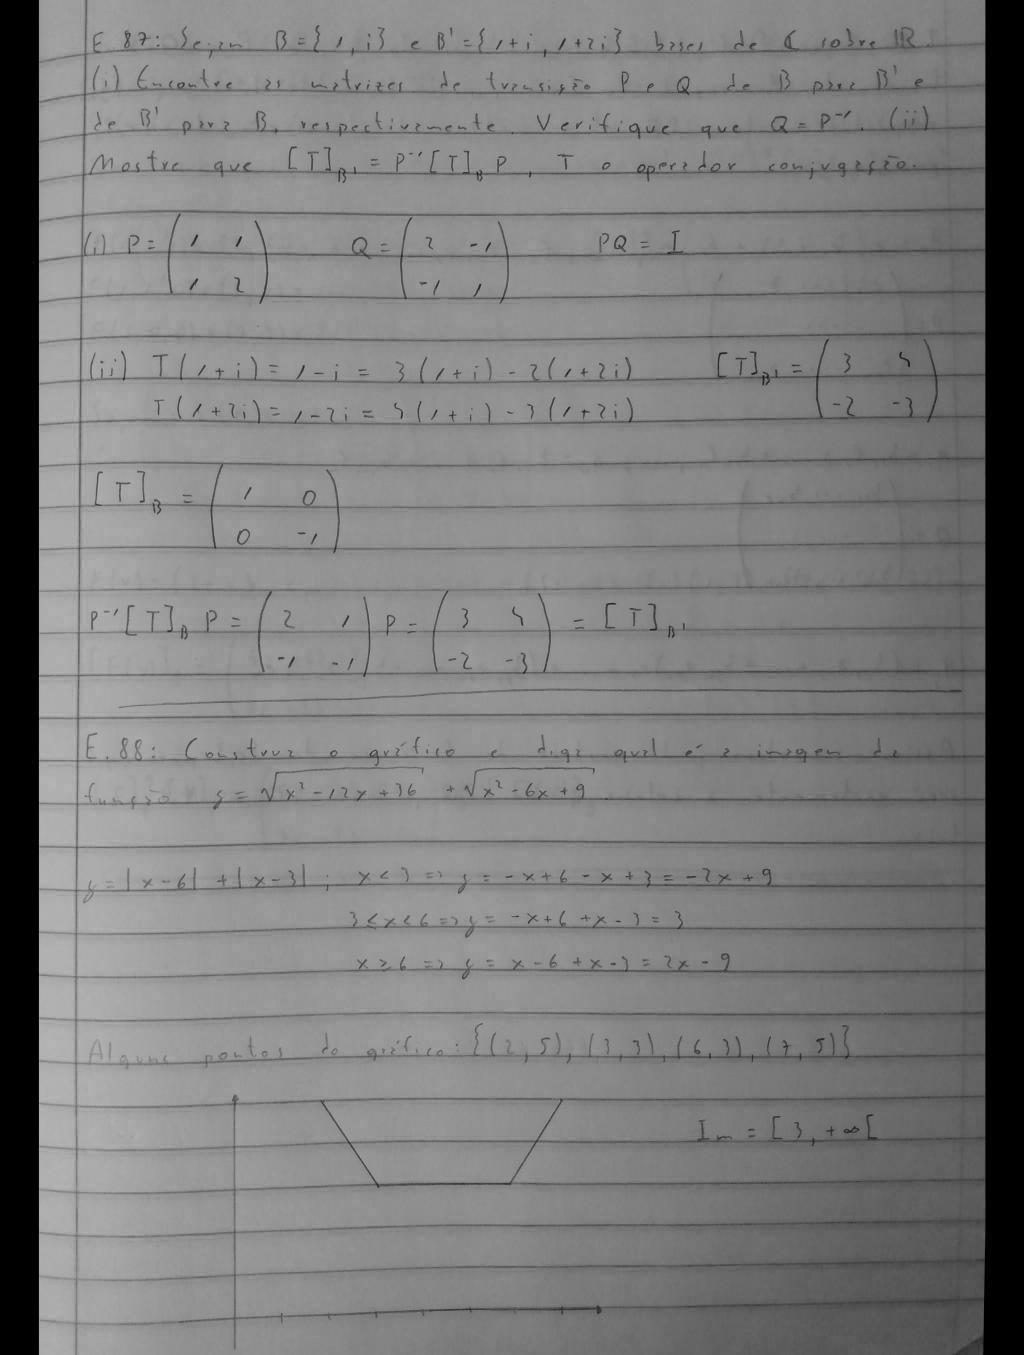 E 87: Sejam B={1, i} e B'={1+i, 1+2i} bases de ℂ sobre ℝ.
(i) Encontre as matrizes de transição P e Q de B para B' e
de B' para B, respectivamente. Verifique que Q = P⁻¹. (ii)
Mostre que [T]_B' = P⁻¹[T]_B P, T o operador conjugação.
(i) P = ( 1 1 ; 1 2 ) Q = ( 2 -1 ; -1 1 ) PQ = I
(ii) T(1+i) = 1-i = 3(1+i) - 2(1+2i) [T]_B' = ( 3 4 ; -2 -3 )
T(1+2i) = 1-2i = 4(1+i) - 3(1+2i)
[T]_B = ( 1 0 ; 0 -1 )
P⁻¹[T]_B P = ( 2 1 ; -1 -1 ) P = ( 3 4 ; -2 -3 ) = [T]_B'
E.88: Construa o gráfico e diga qual é a imagem da
função y = √(x² - 12x + 36) + √(x² - 6x + 9).
y = |x-6| + |x-3| ; x < 3 => y = -x+6 -x+3 = -2x+9
3 ≤ x < 6 => y = -x+6 +x-3 = 3
x ≥ 6 => y = x-6 +x-3 = 2x-9
Alguns pontos do gráfico: {(2, 5), (3, 3), (6, 3), (7, 5)}
Im = [3, +∞[